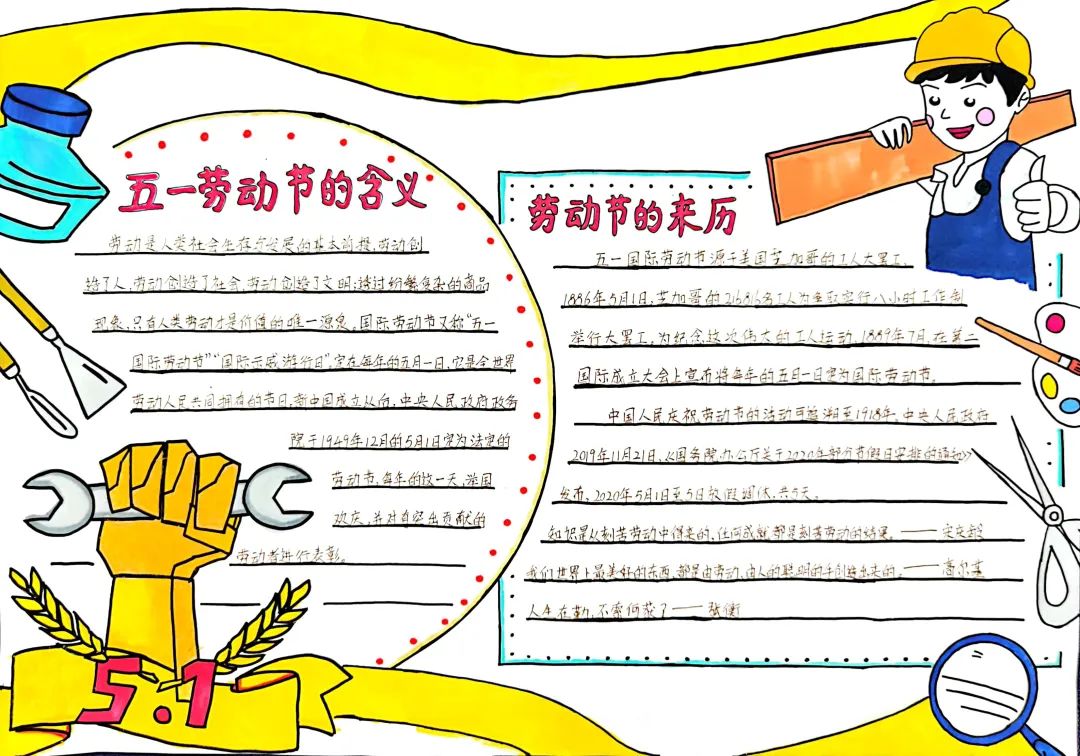 五一劳动节的含义
劳动是人类社会生存与发展的基本前提,劳动创
造了人,劳动创造了社会,劳动创造了文明;透过纷繁复杂的商品
现象,只有人类劳动才是价值的唯一源泉。国际劳动节又称“五一
国际劳动节”“国际示威游行日”,定在每年的五月一日,它是全世界
劳动人民共同拥有的节日,新中国成立以后,中央人民政府政务
院于1949年12月的5月1日定为法定的
劳动节,每年的这一天,举国
欢庆,并对有突出贡献的
劳动者进行表彰。
5.1
劳动节的来历
五一国际劳动节源于美国芝加哥的工人大罢工,
1886年5月1日,芝加哥的216816名工人为争取实行八小时工作制
举行大罢工,为纪念这次伟大的工人运动,1889年7月,在第二
国际成立大会上宣布将每年的五月一日定为国际劳动节。
中国人民庆祝劳动节的活动可追溯至1918年,中央人民政府
2019年11月21日,《国务院办公厅关于2020年部分节假日安排的通知》
发布,2020年5月1日至5日放假调休,共5天。
知识是从刻苦劳动中得来的,任何成就都是刻苦劳动的结果。——宋庆龄
我们世界上最美好的东西,都是由劳动、由人的聪明的手创造出来的。——高尔基
人生在勤,不索何获?——张衡